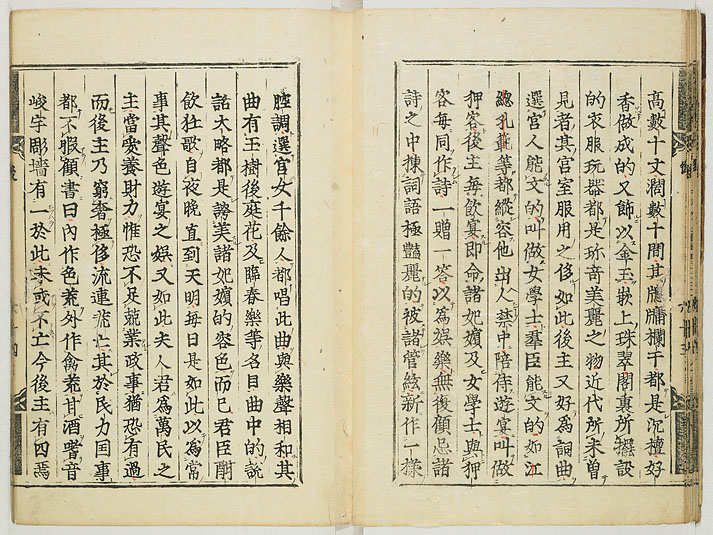 高數十丈濶數十間其牕牖欄干都是沉檀好
香做成的又飾以金玉嵌上珠翠閣裏所擺設
的衣服玩器都是珎竒美麗之物近代所未曾
見者其宮室服用之侈如此後主又好爲詞曲
選宮人能文的叫做女學士羣臣能文的如江
緫孔範等都縱容他出入禁中陪侍遊宴叫做
狎客後主每飲宴即命諸妃嬪及女學士與狎
客每同作詩一贈一答以爲娛樂無復顧忌諸
詩之中揀詞語極豔麗的被諸管絃新作一樣
腔調選宮女千餘人都唱此曲與樂聲相和其
曲有玉樹後庭花及臨春樂等名目曲中的說
話大略都是誇美諸妃嬪的容色而已君臣酣
飲狂歌自夜晚直到天明每日是如此以爲常
事其聲色遊宴之娛又如此夫人君爲萬民之
主當愛養財力惟恐不足兢業政事猶恐有過
而後主乃窮奢極侈流連荒亡其於民力囯事
都不暇顧書曰內作色荒外作禽荒甘酒嗜音
峻宇彫墻有一於此未或不亡今後主有四焉